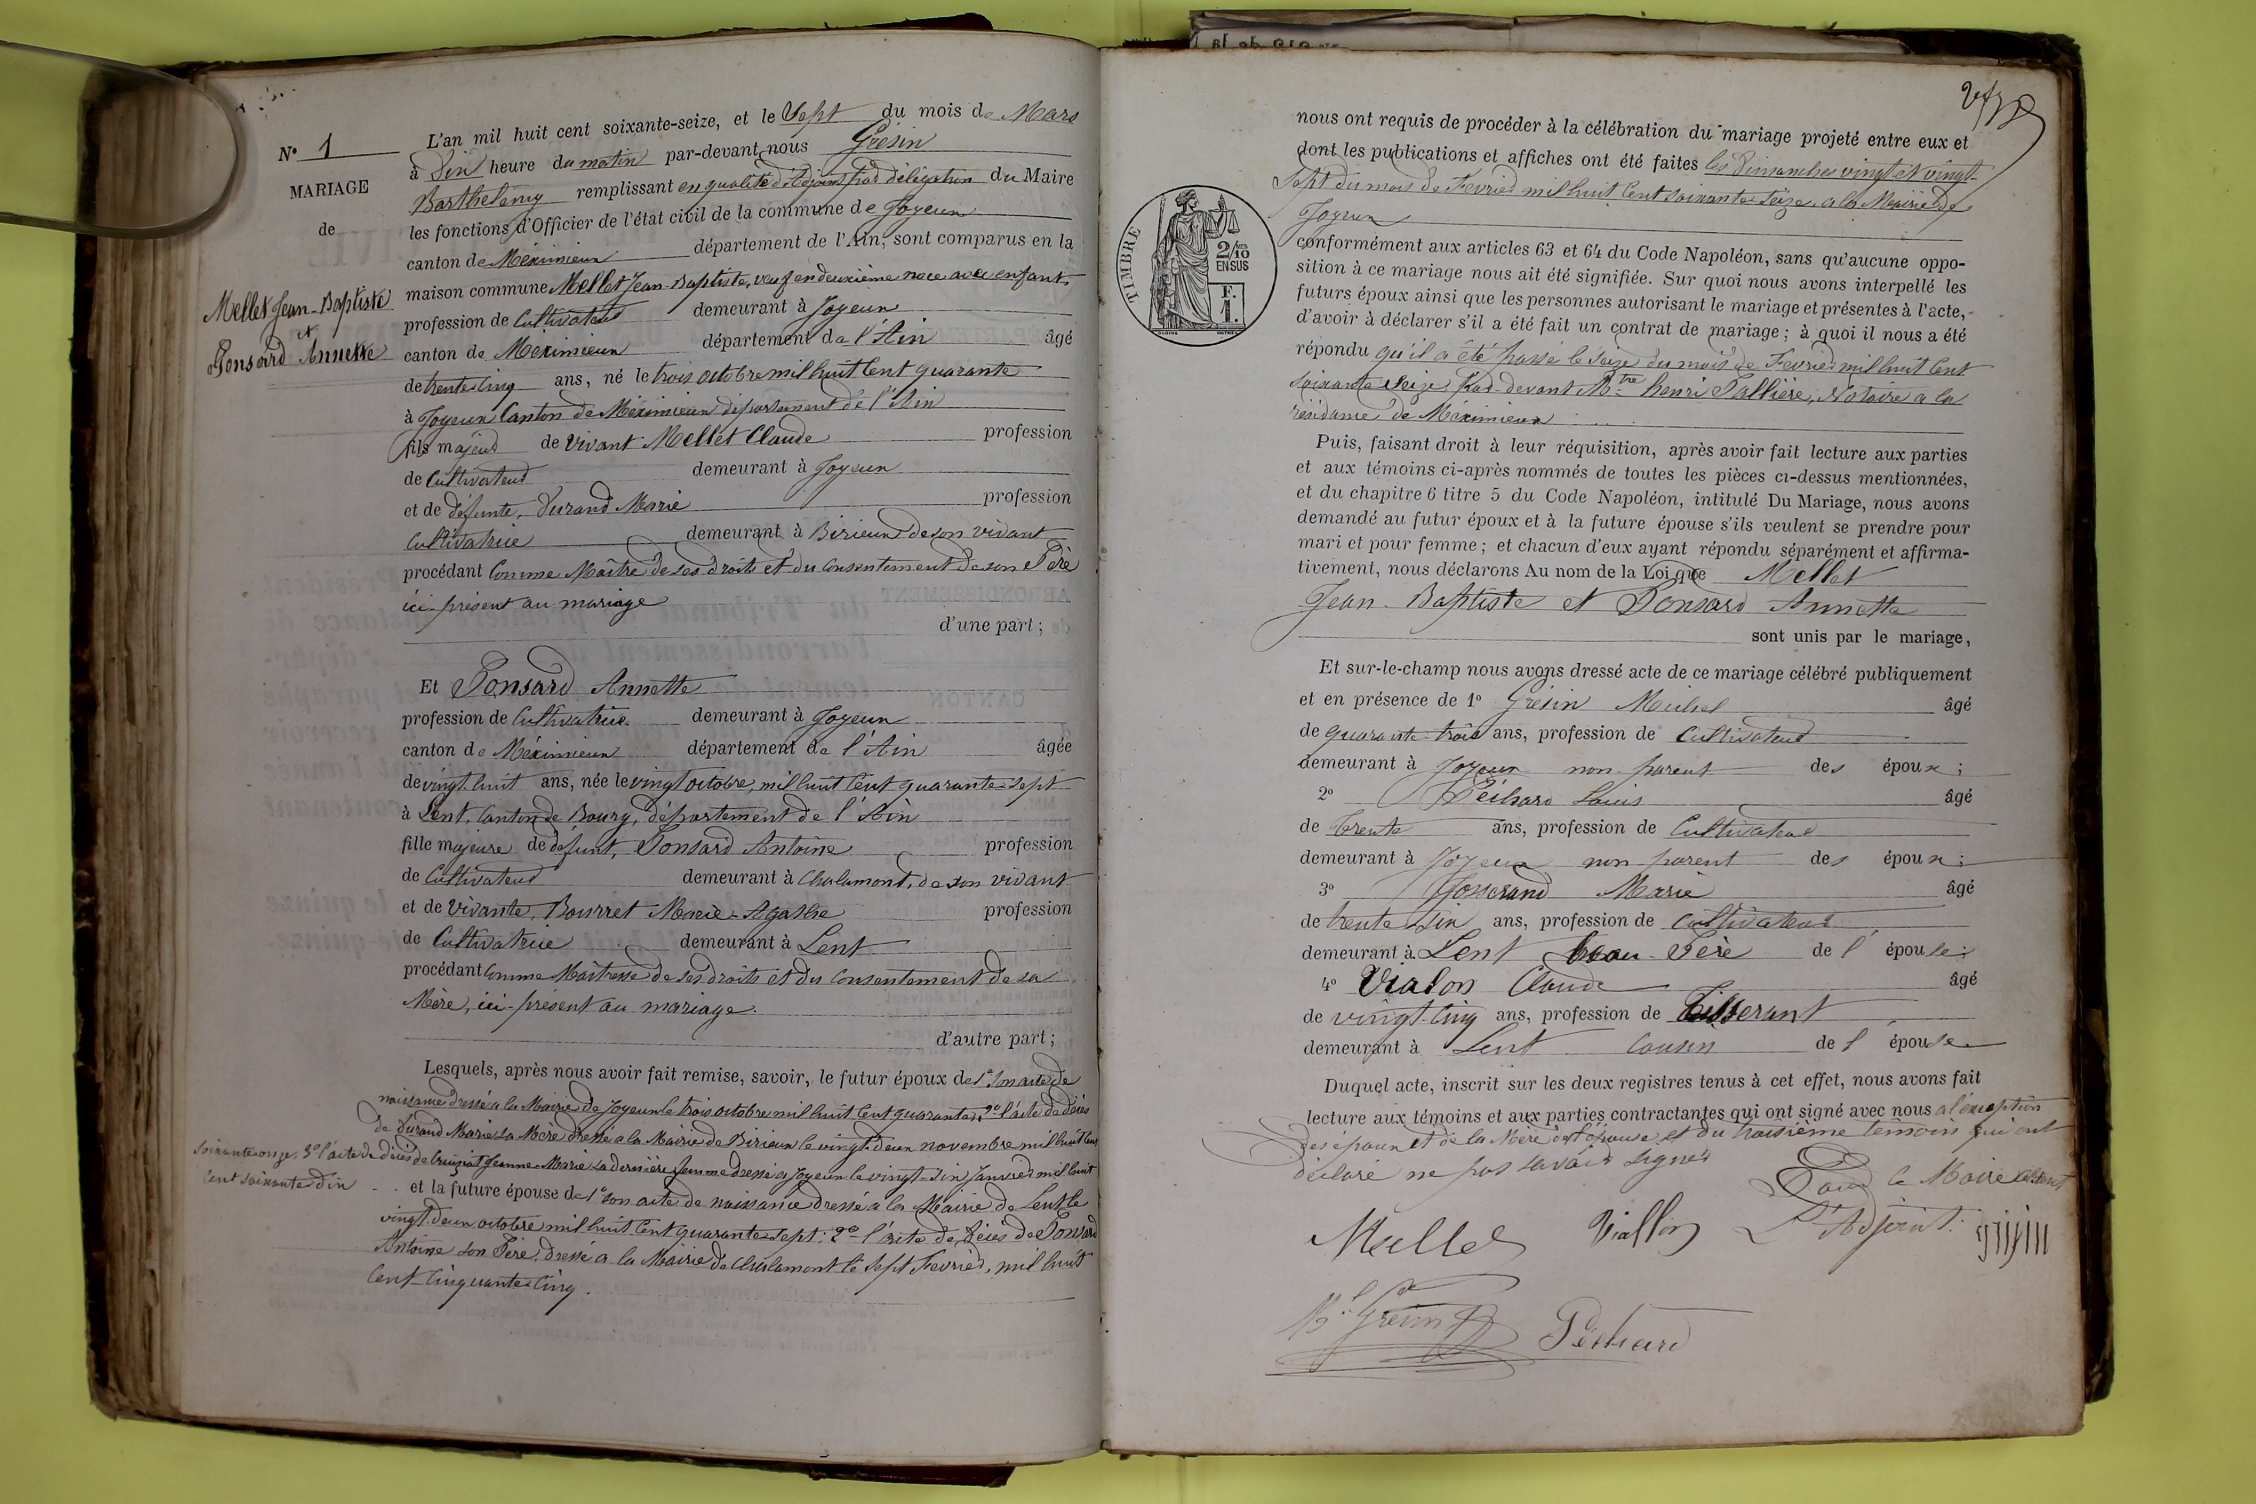 N° 1
MARIAGE
de
Mellet Jean-Baptiste
et
Ponsard Annette
L'an mil huit cent soixante-seize, et le Sept du mois de Mars
à Six heure du matin par-devant nous Grésin
Barthelemy remplissant en qualité d'Adjoint par délégation du Maire
les fonctions d'Officier de l'état civil de la commune de Joyeux
canton de Méximieux département de l'Ain, sont comparus en la
maison commune Mellet Jean-Baptiste, veuf en deuxième noce avec enfant
profession de Cultivateur demeurant à Joyeux
canton de Meximieux département de l'Ain âgé
de trente-cinq ans, né le trois octobre mil huit Cent quarante
à Joyeux Canton de Méximieux département de l'Ain
fils majeur de vivant Mellet Claude profession
de Cultivateur demeurant à Joyeux
et de défunte, Durand Marie profession
Cultivatrice demeurant à Birieux de son vivant
procédant Comme Maître de ses droits et du consentement de son Père
ici-présent au mariage
d'une part;
Et Ponsard Annette
profession de Cultivatrice demeurant à Joyeux
canton de Méximieux département de l'Ain âgée
de vingt-huit ans, née le vingt octobre, mil huit Cent quarante-sept
à Lent, Canton de Bourg, département de l'Ain
fille majeure de défunt, Ponsard Antoine profession
de Cultivateur demeurant à Chalamont, de son vivant
et de vivante, Bourret Marie-Agathe profession
de Cultivatrice demeurant à Lent
procédant Comme Maîtresse de ses droits et du consentement de sa
Mère, ici-présent au mariage.
d'autre part;
Lesquels, après nous avoir fait remise, savoir, le futur époux de 1° Son acte de
naissance dressé a la Mairie de Joyeux le trois octobre mil huit Cent quarante; 2° l'acte de décès
de Durand Marie sa Mère dressé a la Mairie de Birieux le vingt-deux novembre mil huit Cent
soixante onze, 3° l'acte de décès de Jeanne-Marie sa dernière femme dressé a Joyeux le vingt-six Janvier mil huit
Cent soixante dix et la future épouse de 1° son acte de naissance dressé a la Mairie de Lent le
vingt-deux octobre mil huit Cent quarante-sept: 2° l'acte de décès de Ponsard
Antoine son Père, dressé a la Mairie de Chalamont le sept Fevrier, mil huit
Cent-Cinquante-Cinq.
nous ont requis de procéder à la célébration du mariage projeté entre eux et
dont les publications et affiches ont été faites les Dimanches vingt et vingt-
sept du mois de Fevrier mil huit Cent soixante Seize, a la Mairie de
Joyeux
TIMBRE
2/10
EN SUS
F.
1.
conformément aux articles 63 et 64 du Code Napoléon, sans qu'aucune oppo-
sition à ce mariage nous ait été signifiée. Sur quoi nous avons interpellé les
futurs époux ainsi que les personnes autorisant le mariage et présentes à l'acte,
d'avoir à déclarer s'il a été fait un contrat de mariage; à quoi il nous a été
répondu qu'il a été passé le seize du mois de Fevrier mil huit Cent
soixante Seize par-devant Mtre henri Pallière, Notaire a la
résidance de Méximieux
Puis, faisant droit à leur réquisition, après avoir fait lecture aux parties
et aux témoins ci-après nommés de toutes les pièces ci-dessus mentionnées,
et du chapitre 6 titre 5 du Code Napoléon, intitulé Du Mariage, nous avons
demandé au futur époux et à la future épouse s'ils veulent se prendre pour
mari et pour femme; et chacun d'eux ayant répondu séparément et affirma-
tivement, nous déclarons Au nom de la Loi que Mellet
Jean-Baptiste et Ponsard Annette
sont unis par le mariage,
Et sur-le-champ nous avons dressé acte de ce mariage célébré publiquement
et en présence de 1° Grésin Michel âgé
de quarante-trois ans, profession de Cultivateur
demeurant à Joyeux non parent des époux;
2° Péchard Louis âgé
de trente ans, profession de Cultivateur
demeurant à Joyeux non parent des époux;
3° Josserand Marie âgé
de trente Six ans, profession de cultivateur
demeurant à Lent beau-Père de l'épouse;
4° Vialon Claude âgé
de vingt-Cinq ans, profession de Tisserant
demeurant à Lent Cousin de l'épouse
Duquel acte, inscrit sur les deux registres tenus à cet effet, nous avons fait
lecture aux témoins et aux parties contractantes qui ont signé avec nous a l'exception
des epoux et de la Mère de l'épouse et du troisième temoin qui ont
déclaré ne pas savoir signer
Pour le Maire absent
L'Adjoint
Mellet Viallon
Ml Grésin Péchard